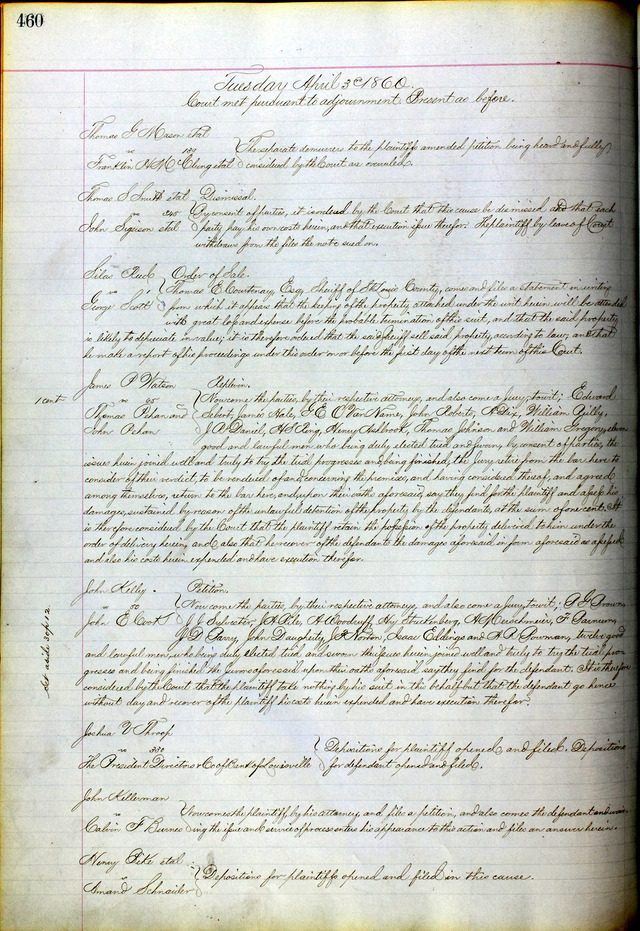 460
Tuesday April 3d 1860.
Court met pursuant to adjournment. Present as before.
Thomas G Mason etal
vs 199
Franklin H McClung etal
The separate demurrers to the plaintiffs amended petition being heard and fully
considered by the Court are overruled.
Thomas S Smith etal Dismissal
vs 245 By consent of parties, it is ordered by the Court that this cause be dismissed and that each
John Sigison etal party pay his own costs herein, and that execution issue therefor. The plaintiff by leave of Court
withdraws from the files the note sued on.
Silas Reed Order of Sale.
vs 91 Thomas E Courtenay Esq, Sheriff of St Louis County, comes and files a statement in writing
George Scott from which it appears that the keeping of the property attached under the writ herein will be attended
with great loss and expense before the probable termination of the suit, and that the said property
is likely to depreciate in value; it is therefore ordered that the said sheriff sell said property, according to law; and that
he make a report of his proceedings under this order on or before the first day of the next term of this Court.
James P Watson Replevin.
vs 65 Now come the parties, by their respective attorneys, and also come a jury, towit; Edward
1 cent
Thomas Pshan and James Hale, John Roberts, A Dix, William Gilby,
John Pshan J A Daniel, Thomas Johnson and William Gregory,
good and lawful men who being duly elected tried and sworn, by consent of parties, the
issues herein joined well and truly to try the trial progresses and being finished, the Jury retire from the bar here to
consider of their verdict, to be rendered of and concerning the premises, and having considered thereof, and agreed
among themselves, return to the bar here, and upon their oaths aforesaid, say they find for the plaintiff and assess his
damages, sustained by reason of the unlawful detention of the property by the defendants, at the sum of one cent. It
is therefore considered by the Court that the plaintiff retain the possession of the property, delivered to him under the
order of delivery herein, and also that he recover of the defendant the damages aforesaid in form aforesaid as assessed
and also his costs herein expended and have execution therefor.
John Kelly. Petition.
vs 50 Now come the parties, by their respective attorneys, and also come a jury, towit; B G Brown,
John E Cook J J Sylvester, J A Pile, A Woodruff, Hy Stuckenberg,
J D Perry, John Daugherty, J P Norton, Isaac Eldings and A R Bowman, twelve good
and lawful men, who being duly elected tried and sworn the issues herein joined well and truly to try the trial pro-
gresses and being finished the jurors aforesaid upon their oaths aforesaid say they find for the defendant. It is therefore
considered by the Court that the plaintiff take nothing by his suit in this behalf but that the defendant go hence
without day and recover of the plaintiff his costs herein expended and have execution therefor.
Set aside
Joshua V Throop
vs 330
The President Directors &Co of Bank of Louisville
Depositions for plaintiff opened and filed. Depositions
for defendant opened and filed.
John Kellerman
vs
Calvin F Burnes
Now comes the plaintiff by his attorney, and files a petition, and also comes the defendant and waiv-
ing the issue and service of process enters his appearance to this action and files an answer herein.
Henry Pike etal
vs
Amand Schnaider
Depositions for plaintiffs opened and filed in this cause.